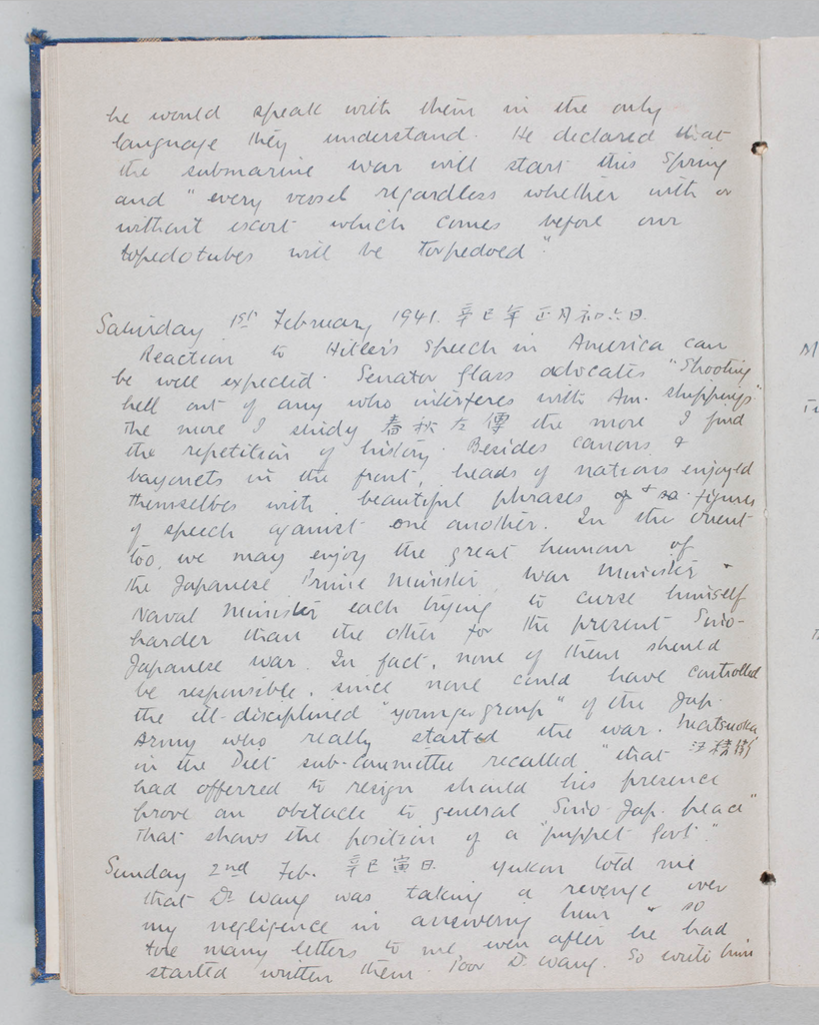 he would speak with them in the only
language they understand. He declared that
the submarine war will start this Spring
and "every vessel regardless whether with or
without escort which comes before our
topedotubes will be torpedoed"
Saturday 1st February 1941. 辛巳年正月初六日.
Reaction to Hitler's speech in America can
be well expected. Senator Glass advocates "Shooting
hell out of any who interferes with Am. shippings"
The more I study 春秋左傳 the more I find
the repetition of history. Besides canons &
bayonets in the front, heads of nations enjoyed
themselves with beautiful phrases & figures
of speech against one another. In the orient
too, we may enjoy the great humour of
the Japanese Prime Minister, War Minister &
Naval Minister each trying to curse himself
harder than the other for the present Sino-
Japanese war. In fact, none of them should
be responsible, since none could have controlled
the ill-disciplined "younger group" of the Jap.
Army who really started the war. Matsuoka,
in the Diet sub-committee recalled "that 汪精衛
had offerred to resign should his presence
prove an obstacle to general Sino-Jap. peace"
That shows the position of a "puppet Govt."
Sunday 2nd Feb. 辛巳 寅日. Yukon told me
that Dr. Wang was taking a revenge over
my negligence in answering him & so
tore many letters to me even after he had
started written them. Poor Dr. Wang. So write him